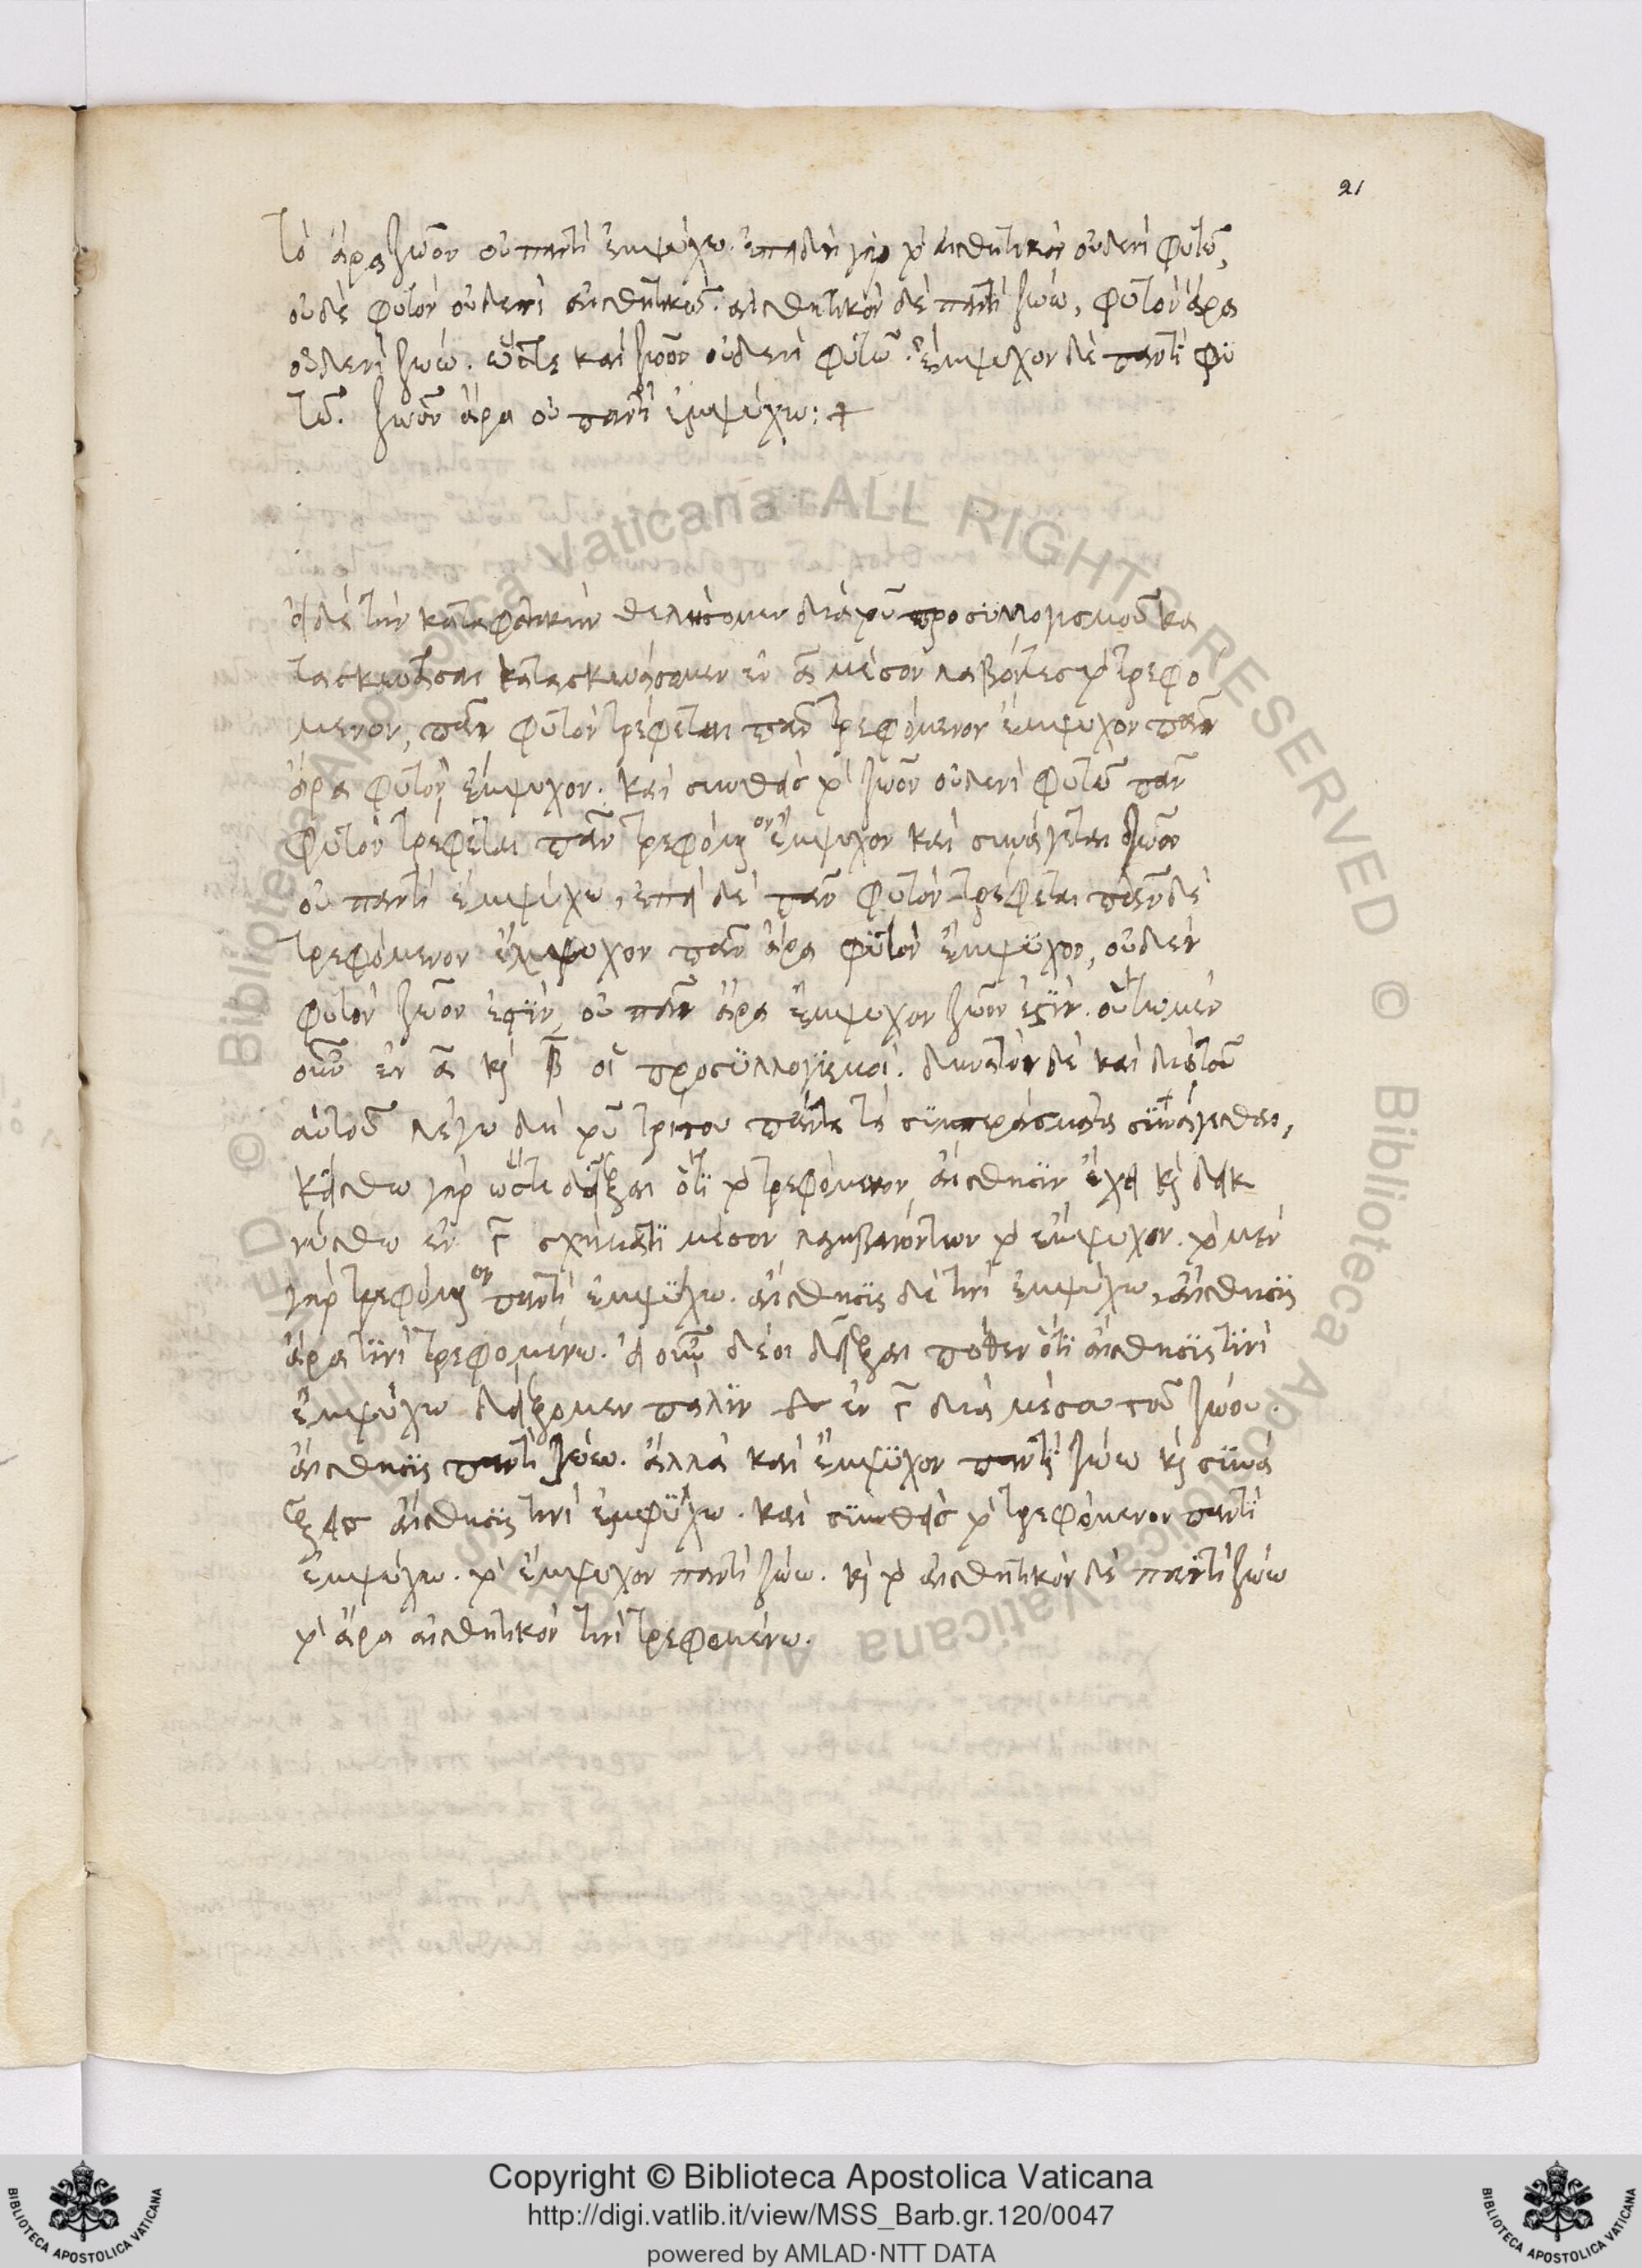 21
τὸ ἄρα ζῶον οὐ παντὶ ἐμψύχω. ἐπειδὴ γὰρ τὸ αἰσθητικὸν οὐδενὶ φυτῶ,
οὐδὲ φυτὸν οὐδενὶ αἰσθητικῶ. αἰσθητικὸν δὲ παντὶ ζώω, φυτὸν ἄρα
οὐδενὶ ζώω. ὥστε καὶ ζῶον οὐδενὶ φυτῶ. ἔμψυχον δὲ παντὶ φυ
τῶ. ζῶον ἄρα οὐ παντὶ ἐμψύχω: +
εἰ δὲ τὴν καταφατικὴν θελήσομεν διὰ τοῦ προσυλλογισμοῦ κα
τασκευάσαι κατασκευάσομεν ἐν α μέσον λαβόντες τὸ τρεφό
μενον, πᾶν φυτὸν τρέφεται πᾶν τρεφόμενον ἔμψυχον πᾶν
ἄρα φυτὸν ἔμψυχον. καὶ συνθεὶς τὸ ζῶον οὐδενὶ φυτῶ πᾶν
φυτὸν τρέφεται πᾶν τρεφόμενον ἔμψυχον καὶ συνάγεται ζῶον
οὐ παντὶ ἐμψύχω, ἐπεὶ δὲ πᾶν φυτὸν τρέφεται πᾶν δὲ
τρεφόμενον ἔμψυχον πᾶν ἄρα φυτὸν ἔμψυχον, οὐδὲν
φυτὸν ζῶον ἐστὶν, οὐ πᾶν ἄρα ἔμψυχον ζῶον ἐστὶν. οὕτω μὲν
οὖν ἐν α κὶ β οἱ προσυλλογισμοί. δυνατὸν δὲ καὶ διὰ τοῦ
αὐτοῦ λέγω δὴ τοῦ τρίτου πάντα τὰ συμπεράσματα συνάγεσθαι,
κείσθω γὰρ ὥστε δεῖξαι ὅτι τὸ τρεφόμενον αἴσθησιν ἔχει κὶ δεικ
νύσθω ἐν γ σχήματι μέσον λαμβανόντων τὸ ἔμψυχον. τὸ μὲν
γὰρ τρεφόμενον παντὶ ἐμψύχω. αἴσθησις δὲ τινὶ ἐμψύχω, αἴσθησις
ἄρα τινὶ τρεφομένω. εἰ οὖν δέοι δεῖξαι πόθεν ὅτι αἴσθησις τινὶ
ἐμψύχω δείξομεν πάλιν ἐν γ διὰ μέσου τοῦ ζώου.
αἴσθησις παντὶ ζώω. ἀλλὰ καὶ ἔμψυχον παντὶ ζώω κὶ συνά
ξεις αἴσθησις τινὶ ἐμψύχω. καὶ συνθεὶς τὸ τρεφόμενον παντὶ
ἐμψύχω. τὸ ἔμψυχον παντὶ ζώω. κὶ τὸ αἰσθητικὸν δὲ παντὶ ζώω
τὸ ἄρα αἰσθητικὸν τινὶ τρεφομένω.
© Biblioteca Apostolica Vaticana ALL RIGHTS RESERVED © Biblioteca Apostolica Vaticana ALL RIGHTS RESERVED
Copyright © Biblioteca Apostolica Vaticana
http://digi.vatlib.it/view/MSS_Barb.gr.120/0047
powered by AMLAD·NTT DATA
BIBLIOTECA APOSTOLICA VATICANA
BIBLIOTECA APOSTOLICA VATICANA